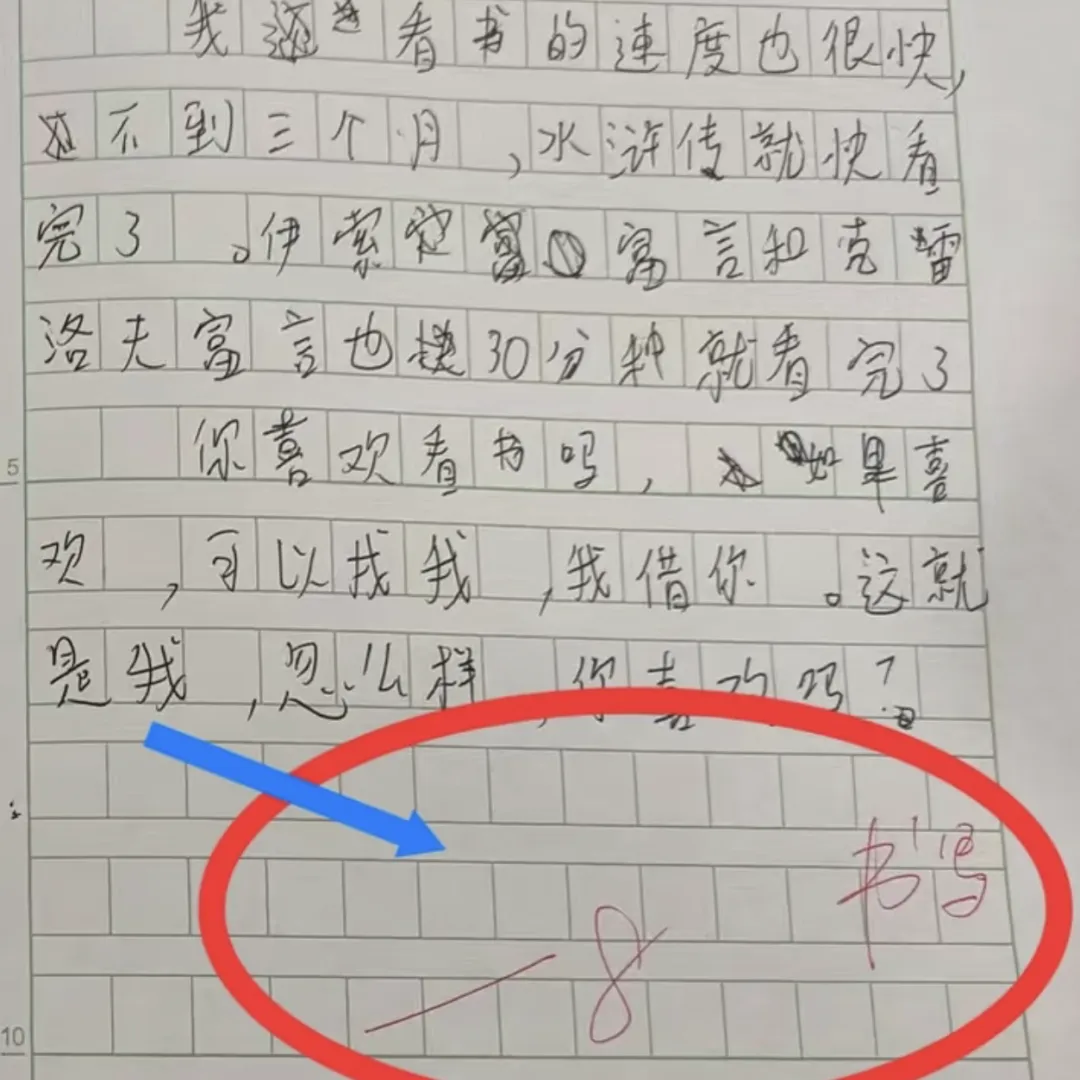 我还看书的速度也很快,
不到三个月,水浒传就快看
完了。伊索富言和克雷
洛夫富言也才30分钟就看完了
你喜欢看书吗,如果喜
欢,可以找我,我借你。这就
是我,忽么样,你喜欢吗?
书写
-8
5
10